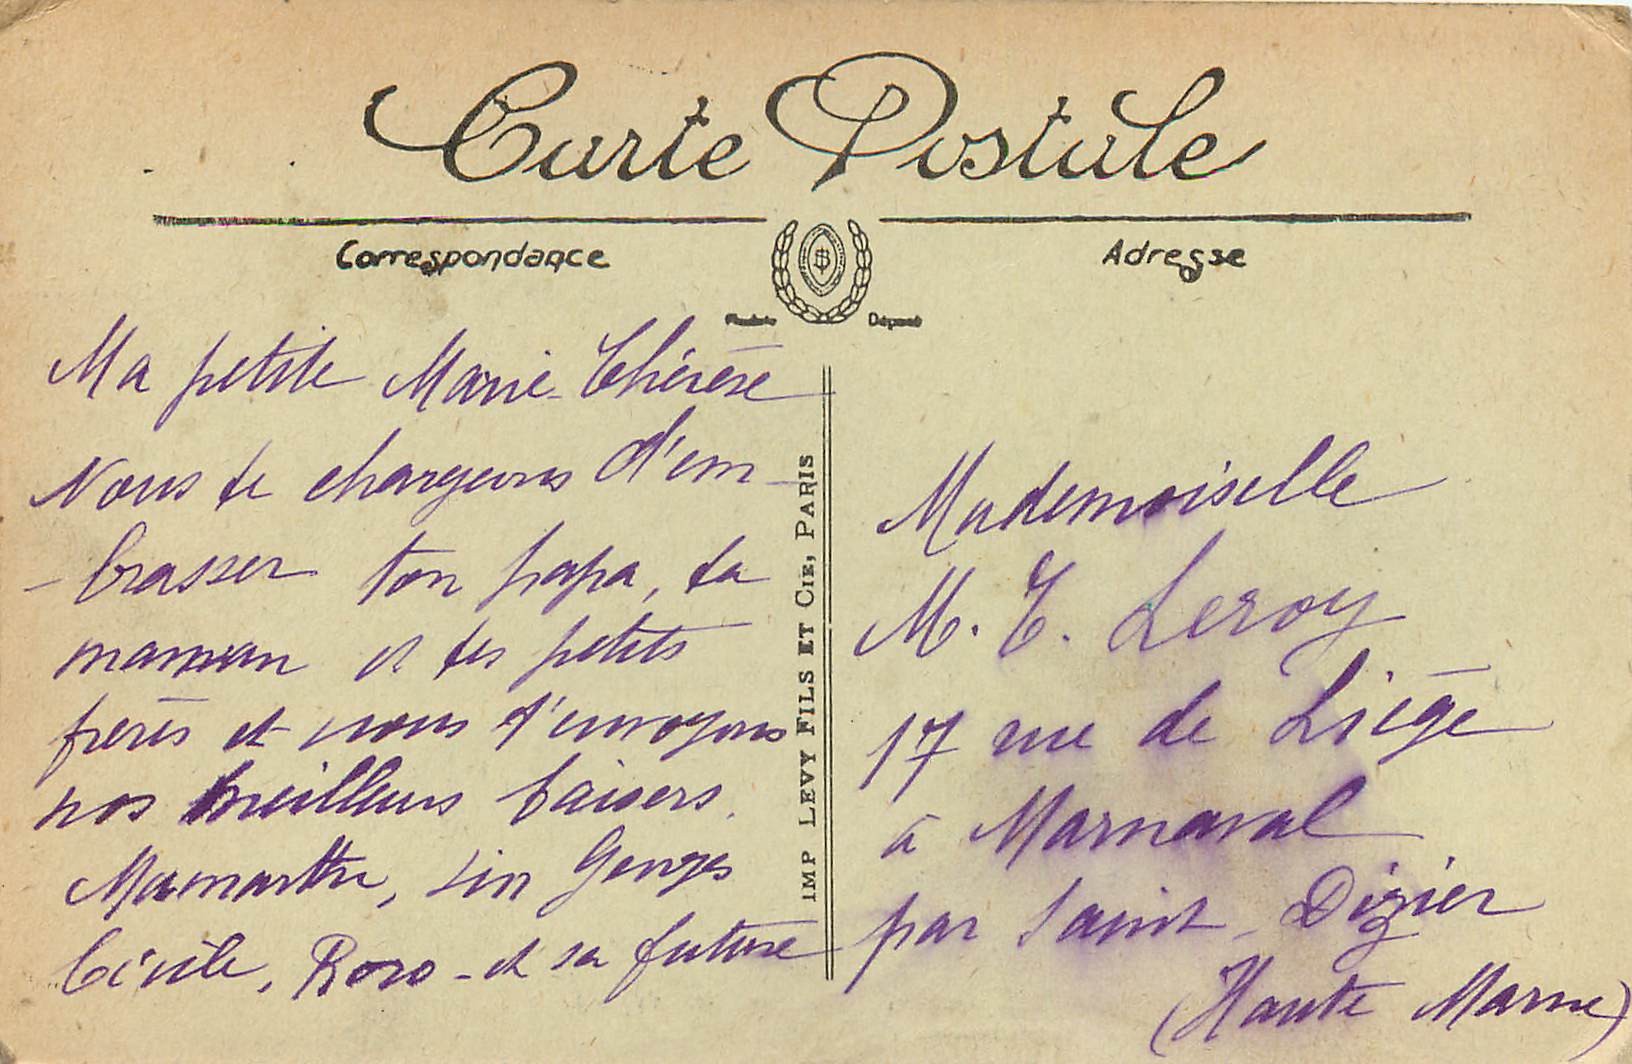 Carte Postale
Correspondance
Adresse
Déposé
Ma petite Marie-Thérèse
Nous te chargeons d'em-
-brasser ton papa, ta
maman et tes petits
frères et nous t'envoyons
nos meilleurs baisers.
Georges
Cécile, Roro - et sa future
IMP LEVY FILS ET CIE, PARIS
Mademoiselle
M. T. Leroy
17 rue de Liège
à Marnaval
par Saint-Dizier
(Haute Marne)